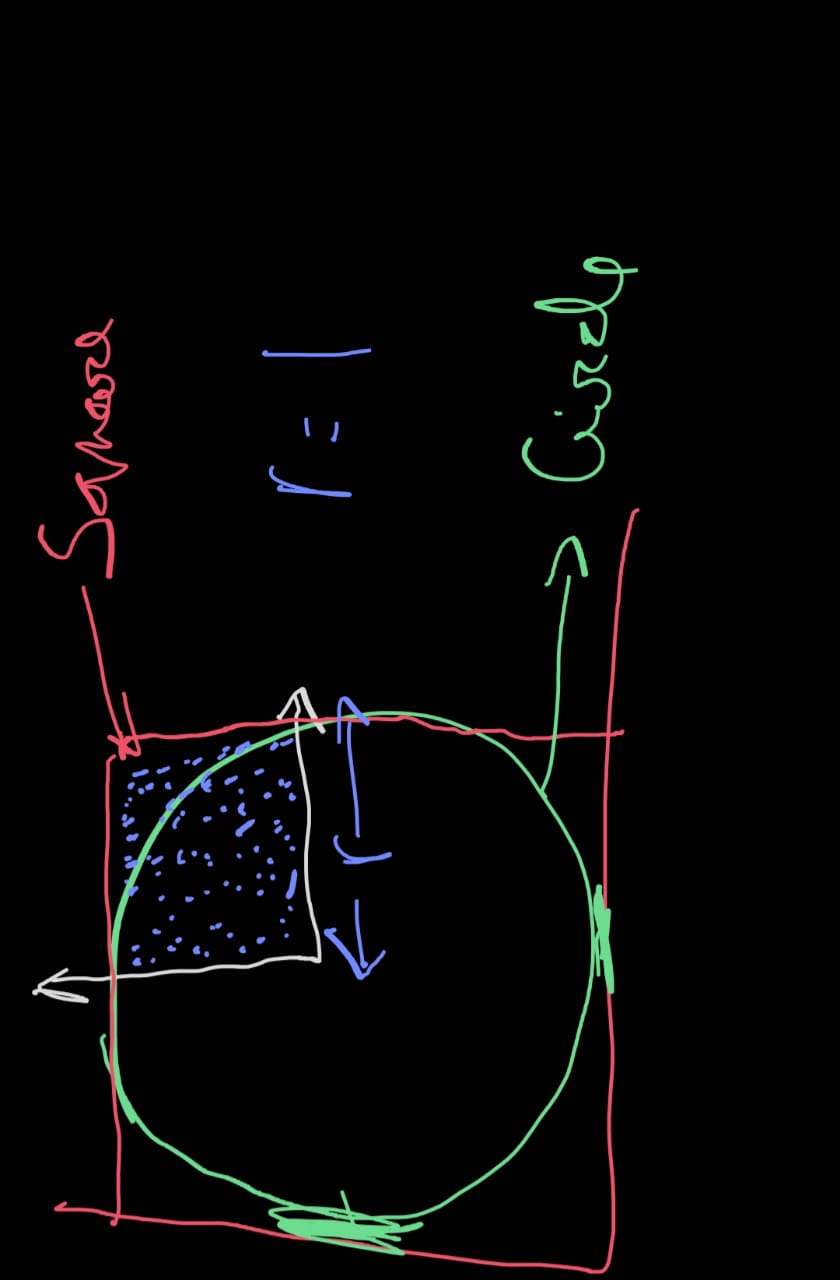 Square
r = 1
r
Circle